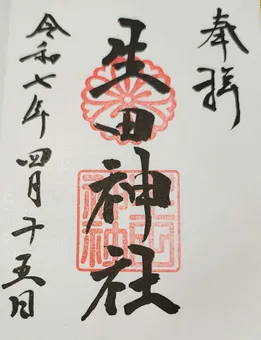 奉拝
生田神社
令和七年四月十五日
生田神社